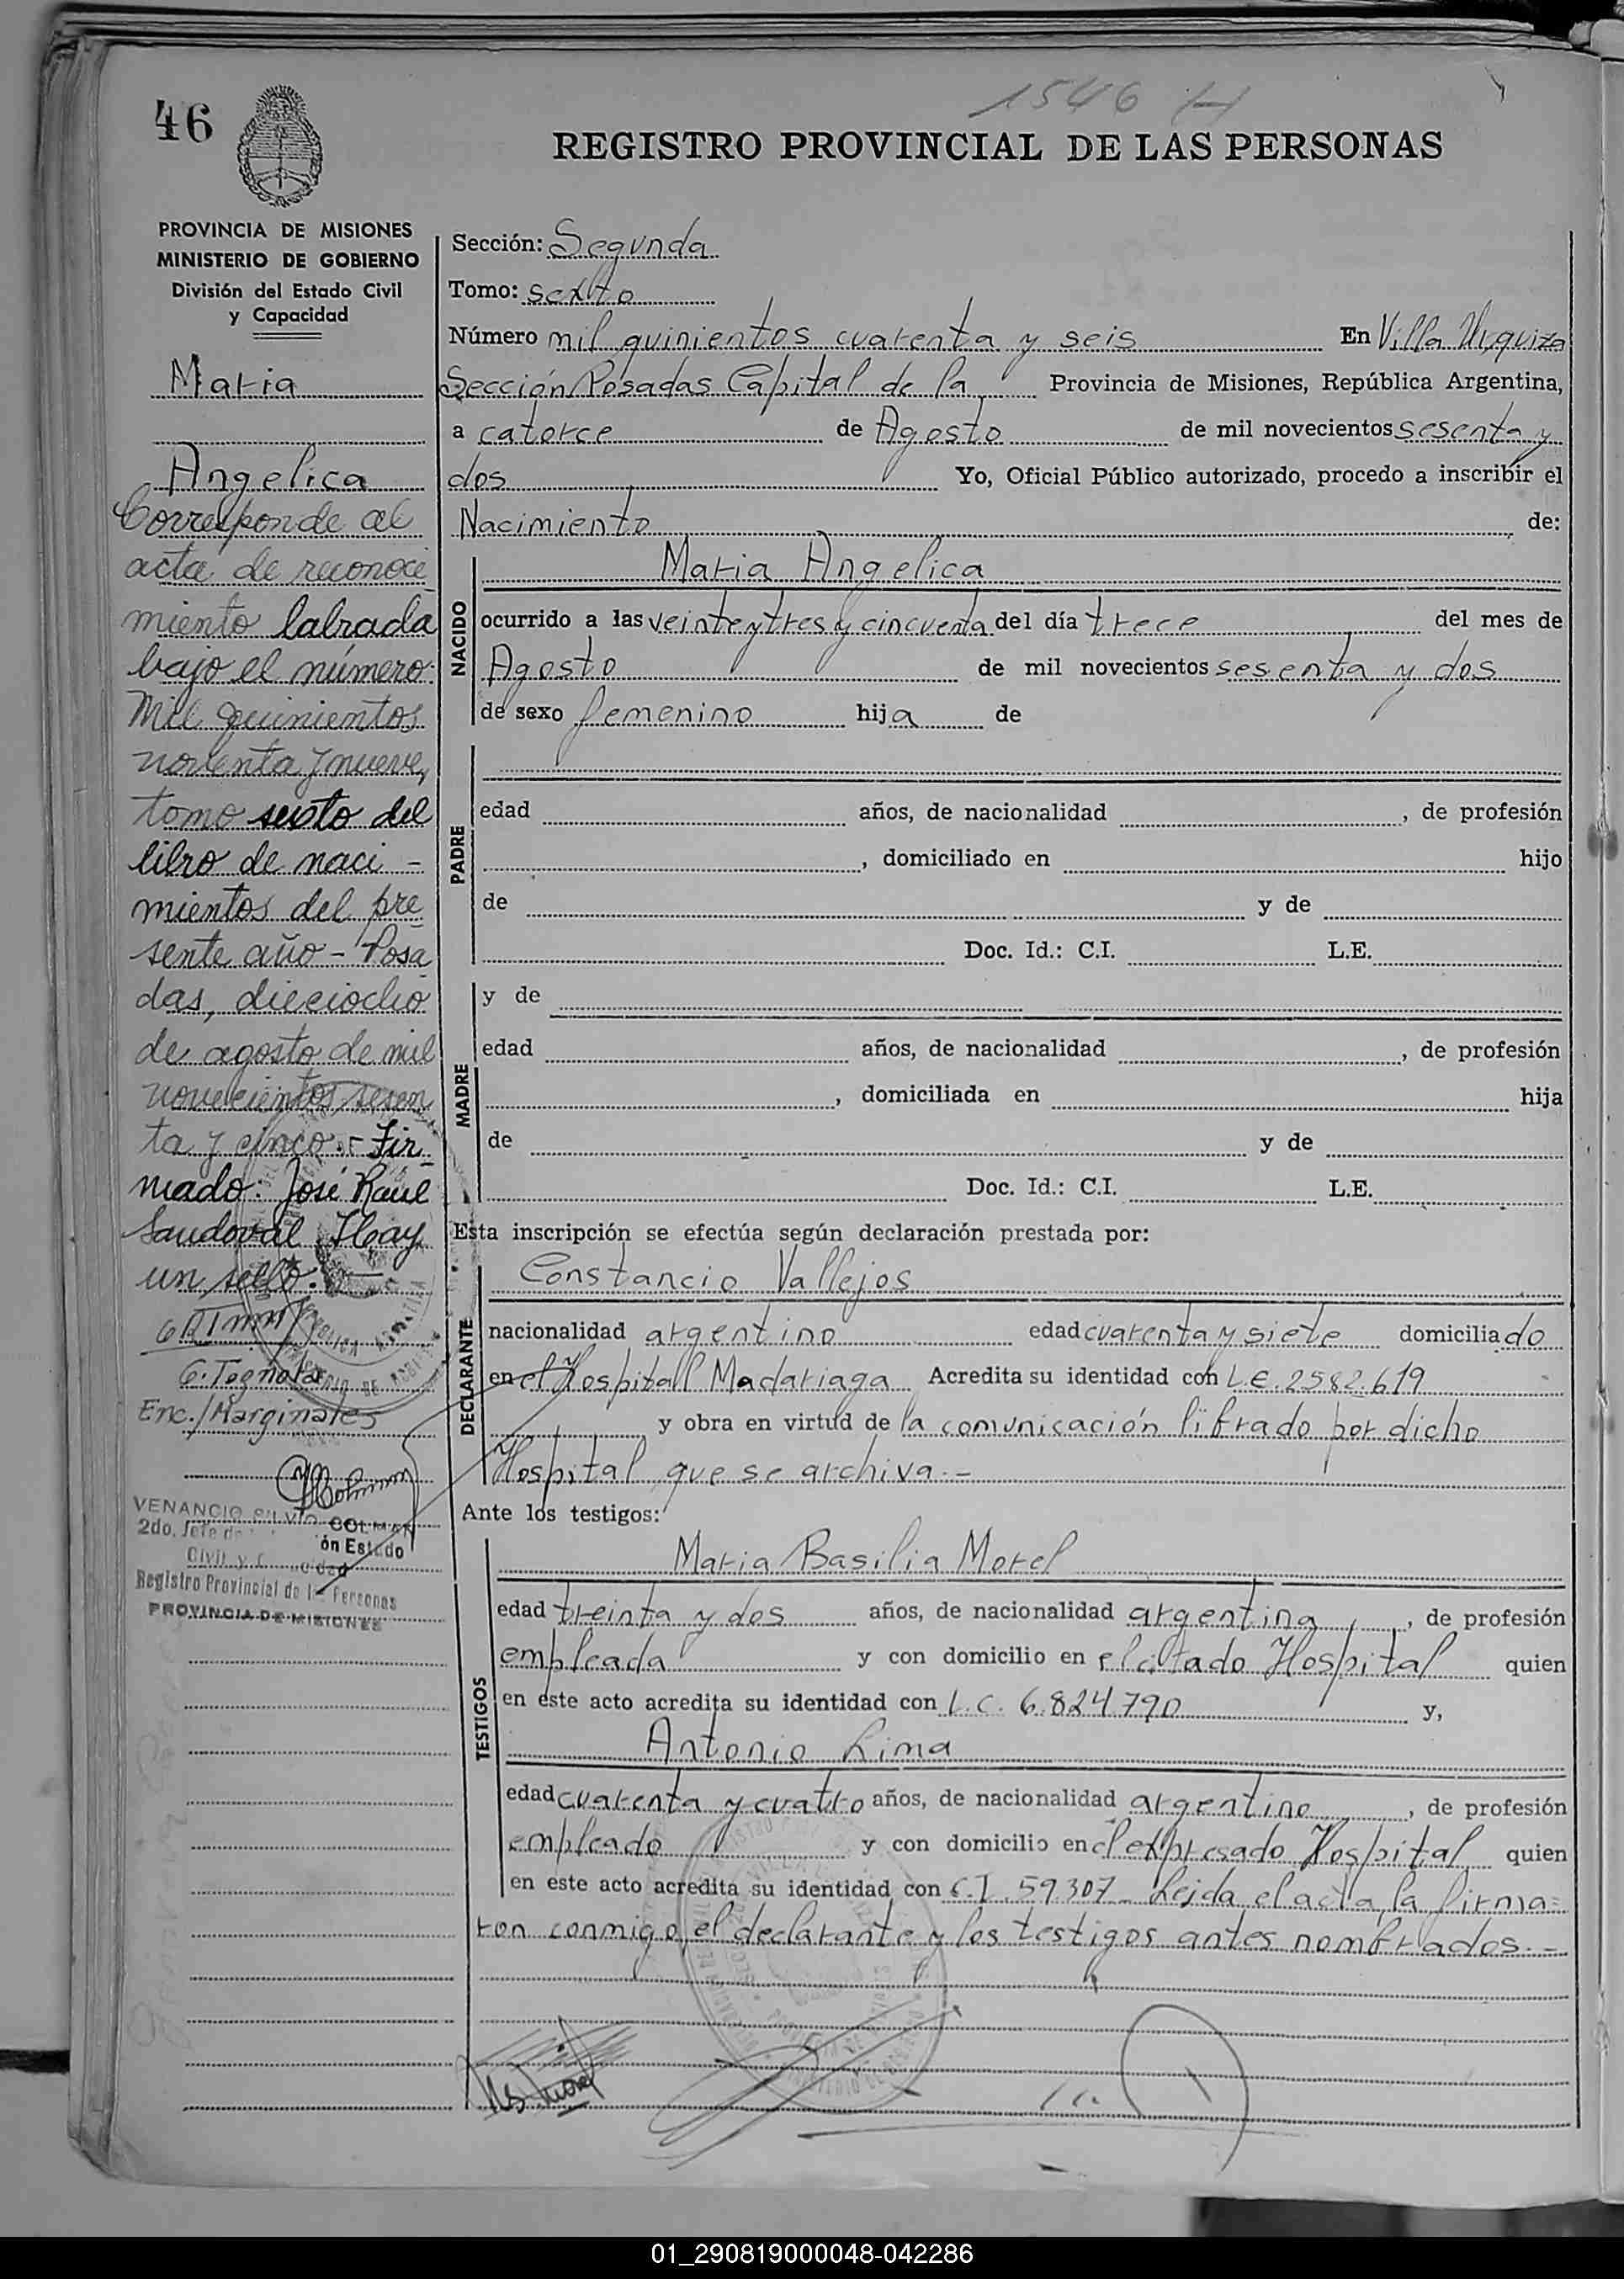 46
1546 H
REGISTRO PROVINCIAL DE LAS PERSONAS
PROVINCIA DE MISIONES
MINISTERIO DE GOBIERNO
División del Estado Civil
y Capacidad
Maria
Angelica
Corresponde al
acta de reconoci
miento labrada
bajo el número:
Mil quinientos
noventa y nueve,
tomo sexto del
libro de naci -
mientos del pre
sente año - Posa
das, dieciocho
de agosto de mil
novecientos sesen
ta y cinco.- Fir
mado: José Raúl
Sandoval Hay
un sello.-
Enc./Marginales
VENANCIO SILVIO COLMAN
2do. Jefe de ón Estado
Civil y
Registro Provincial de las Personas
PROVINCIA DE MISIONES
Sección: Segunda
Tomo: sexto
Número mil quinientos cuarenta y seis En Villa Urquiza
Sección Posadas Capital de la Provincia de Misiones, República Argentina,
a catorce de Agosto de mil novecientos sesenta y
dos Yo, Oficial Público autorizado, procedo a inscribir el
Nacimiento de:
NACIDO
Maria Angelica
ocurrido a las veinte y tres y cincuenta del día trece del mes de
Agosto de mil novecientos sesenta y dos
de sexo femenino hija de
PADRE
edad años, de nacionalidad , de profesión
, domiciliado en hijo
de y de
Doc. Id.: C.I. L.E.
MADRE
y de
edad años, de nacionalidad , de profesión
, domiciliada en hija
de y de
Doc. Id.: C.I. L.E.
Esta inscripción se efectúa según declaración prestada por:
DECLARANTE
Constancio Vallejos
nacionalidad argentino edad cuarenta y siete domiciliado
en el Hospitall Madariaga Acredita su identidad con L.E. 2582.619
y obra en virtud de la comunicación librado por dicho
Hospital que se archiva.-
Ante los testigos:
TESTIGOS
Maria Basilia Morel
edad treinta y dos años, de nacionalidad argentina, de profesión
empleada y con domicilio en el citado Hospital quien
en este acto acredita su identidad con L.C. 6.824.790 y,
Antonio Lima
edad cuarenta y cuatro años, de nacionalidad argentino, de profesión
empleado y con domicilio en el expresado Hospital quien
en este acto acredita su identidad con C.I. 59.307- Leida el acta, la firma=
ron conmigo, el declarante y los testigos antes nombrados.-
01_290819000048-042286